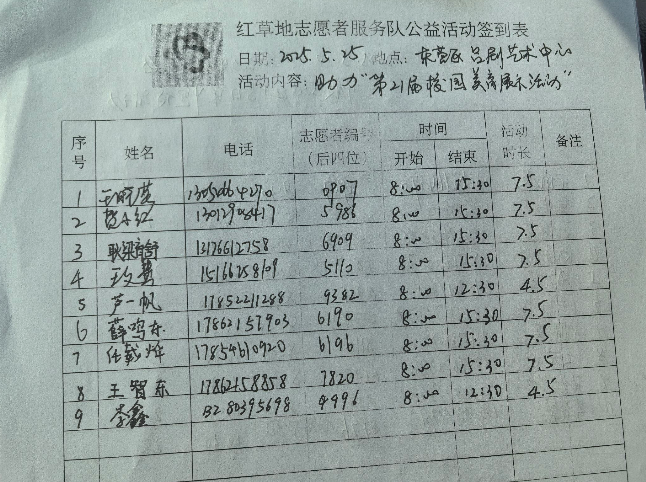 红草地志愿者服务队公益活动签到表
日期: 2025.5.25 地点: 东营区吕剧艺术中心
活动内容: 助力"第21届校园美育展示活动"
序号 姓名 电话 志愿者编号(后四位) 时间 开始 结束 活动时长 备注
1 0907 8:00 15:30 7.5
2 13012905417 5986 8:00 15:30 7.5
3 13176612758 6909 8:00 15:30 7.5
4 15166758109 5110 8:00 15:30 7.5
5 芦一帆 17852211288 9382 8:00 12:30 4.5
6 薛鸣东 17862157903 6190 8:00 15:30 7.5
7 任载烨 17854610920 6196 8:00 15:30 7.5
8 王智东 17862158858 7820 8:00 15:30 7.5
9 李鑫 13280395698 4996 8:00 12:30 4.5